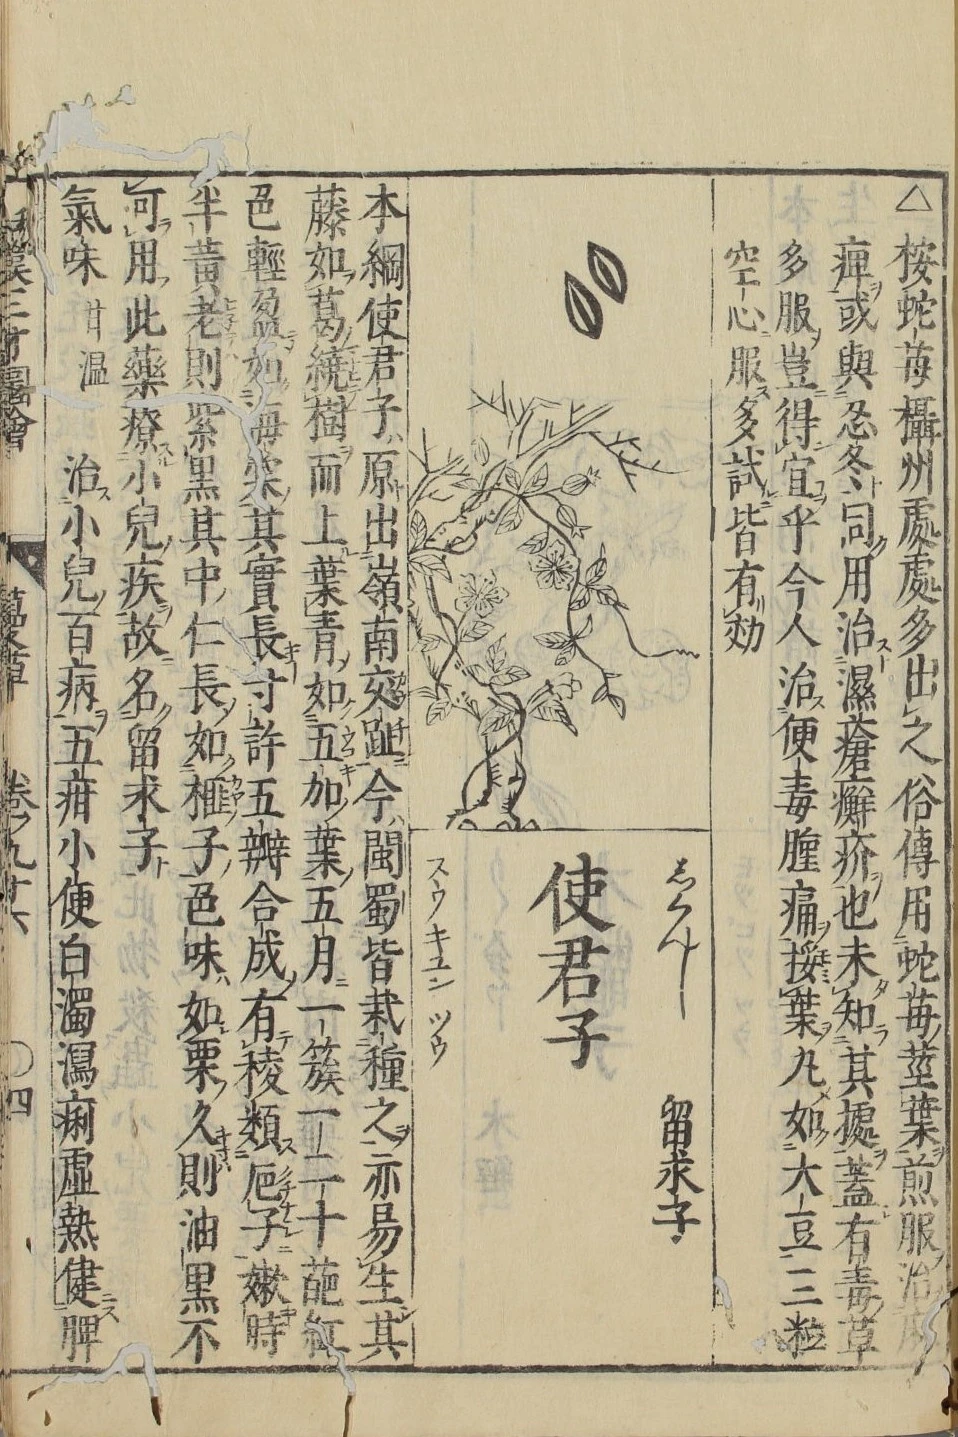 △ 桉蛇苺攝州處處多出之俗傳用蛇苺莖葉煎服治麻
痺或與忍冬同用治濕瘡癬疥也未知其據蓋有毒草
多服豈得宜乎今人治便毒腫痛挼葉丸如大豆三粒
空心服多試皆有効
しくんし
使君子
留求子
スウキユンツウ
本綱使君子原出嶺南交趾今閩蜀皆栽種之亦易生其
藤如葛繞樹而上葉青如五加葉五月一簇一二十葩紅
色輕盈如海棠其實長寸許五瓣合成有稜類巵子嫩時
半黃老則紫黑其中仁長如榧子色味如栗久則油黒不
可用此藥療小兒疾故名留求子
氣味甘温 治小兒百病五疳小便白濁瀉痢虛熱健脾
和漢三才圖會 蔓草 卷ノ九十六 〇四